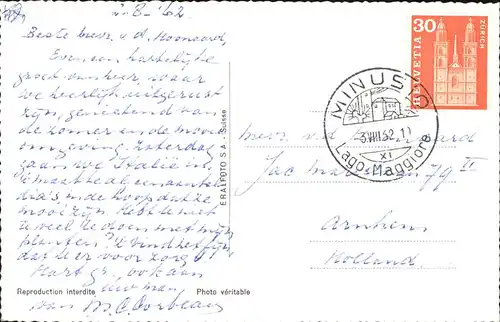 2-8-'62
Beste buur v. d.
Even een hartelijke
groet van hier, waar
we heerlijk uitgerust
zijn, genietend van
de zomer en de mooie
omgeving. Zaterdag
gaan we Italië in.
Ik maakte al een aantal
dia's en de hoop dat ze
mooi zijn. Hebt U niet
te veel te doen met mijn
planten? 'k Vind het fijn
dat U er voor zorgt
Hart. gr., ook aan
Uw man,
van
Reproduction interdite
Photo véritable
ERALFOTO S.A. Suisse
30
HELVETIA
ZÜRICH
MINUSIO
3.VIII.62
XI
Lago Maggiore
Mevr. v. d.
Jac 79 II
Arnhem
Holland.